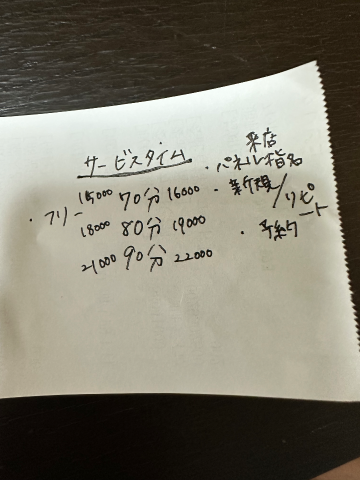 サービスタイム
15000 70分 16000
・フリー
18000 80分 19000
21000 90分 22000
来店
・パネル指名
・新規/リピート
・予約